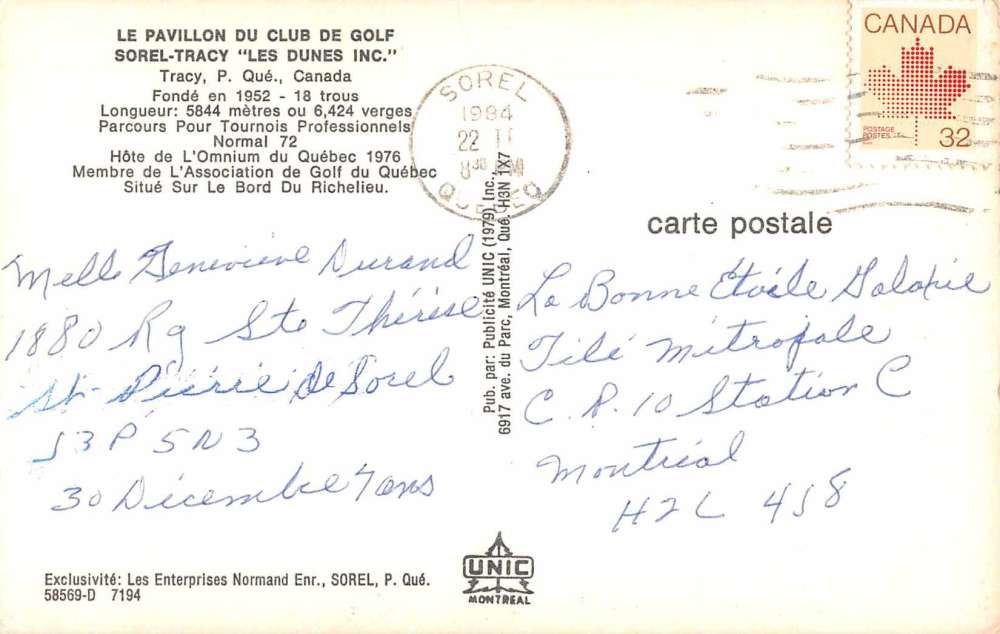 LE PAVILLON DU CLUB DE GOLF
SOREL-TRACY "LES DUNES INC."
Tracy, P. Qué., Canada
Fondé en 1952 - 18 trous
Longueur: 5844 mètres ou 6,424 verges
Parcours Pour Tournois Professionnels
Normal 72
Hôte de L'Omnium du Québec 1976
Membre de L'Association de Golf du Québec
Situé Sur Le Bord Du Richelieu.
SOREL
1984
22
QUEBEC
CANADA
POSTAGE
POSTES
32
carte postale
Melle Geneviève Durand
1880 Rg Ste Thérèse
St-Pierre de Sorel
J3P 5N3
30 Décembre 7 ans
Pub. par: Publicité UNIC (1979) Inc.,
6917 ave. du Parc, Montréal, Qué. H3N 1X7
La Bonne Étoile Galaxie
Télé Métropole
C.P. 10 Station C
Montréal
H2L 4S8
Exclusivité: Les Enterprises Normand Enr., SOREL, P. Qué.
58569-D 7194
UNIC
MONTREAL